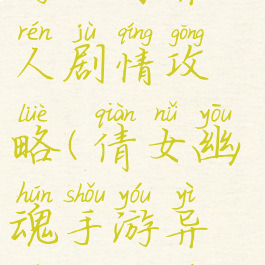 rén jù qíng gōng
人剧情攻
lüè qiàn nǚ yōu
略(倩女幽
hún shǒu yóu yì
魂手游异